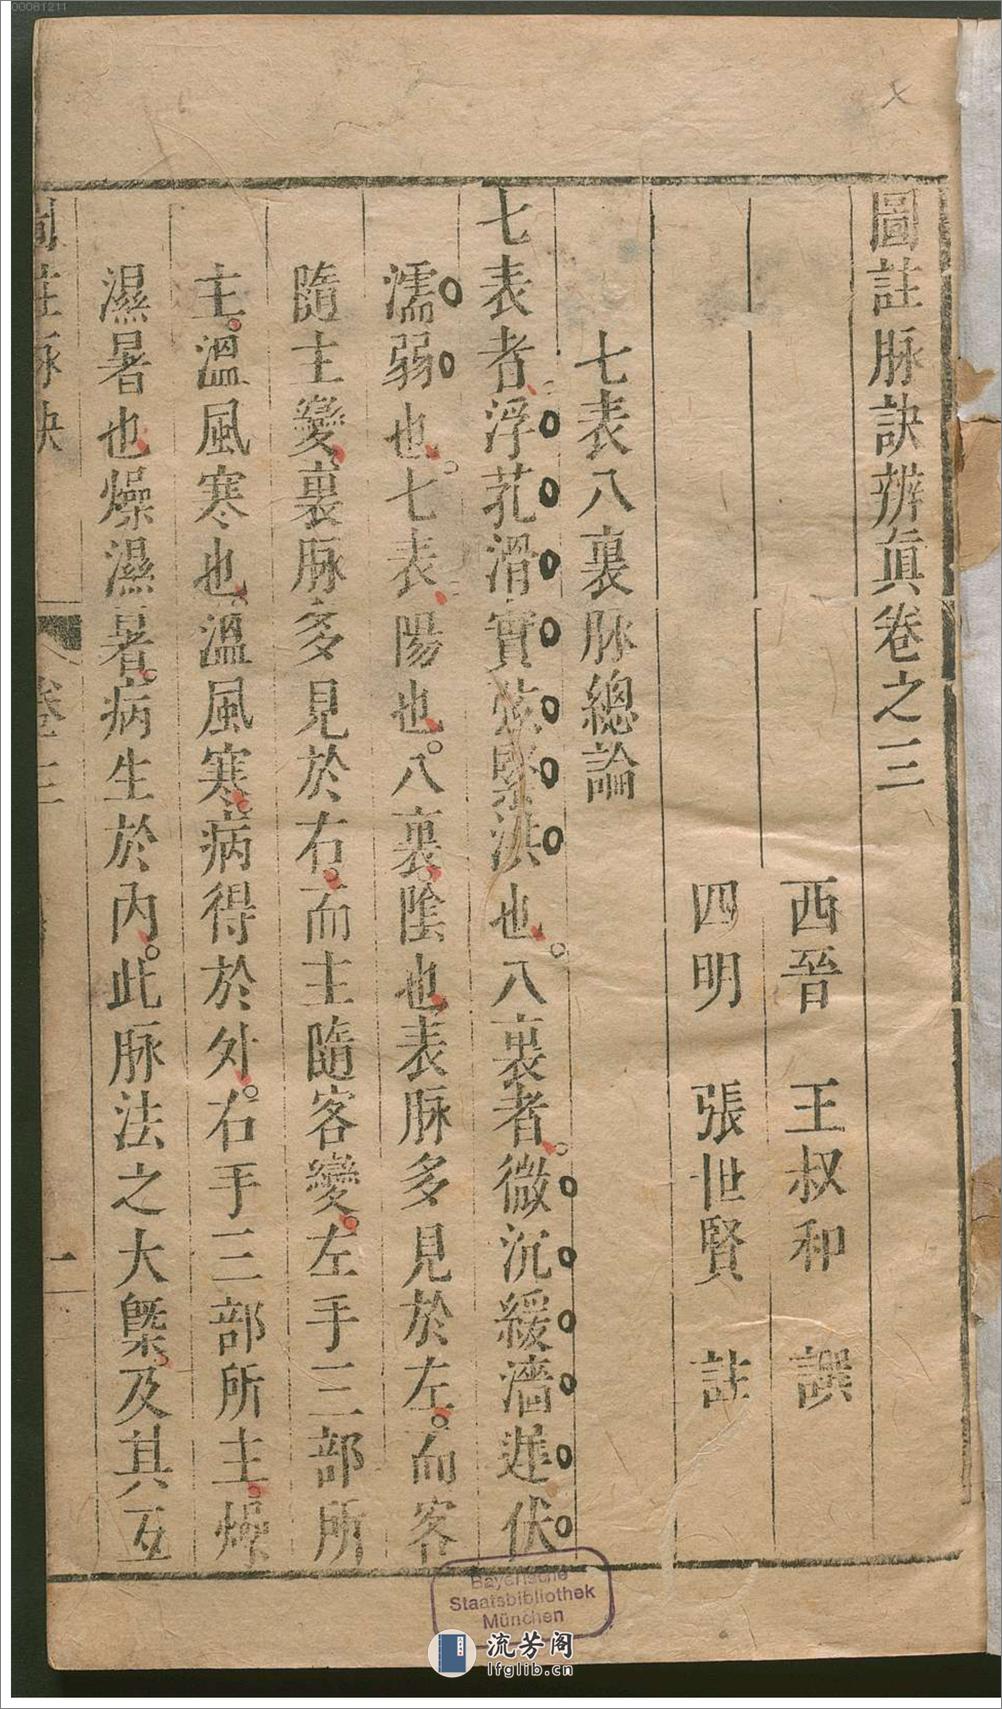 00061211
圖註脉訣辨眞卷之三
西晉 王叔和 譔
四明 張世賢 註
七表八裏脉總論
七表者浮芤滑實弦緊洪也。八裏者。微沉緩濇遲伏
濡弱也。七表陽也。八裏陰也表脉多見於左。而客
隨主變裏脉多見於右。而主隨客變。左手三部所
主。溫風寒也。溫風寒。病得於外。右手三部所主。燥
濕暑也燥濕暑。病生於內。此脉法之大槩及其互
圖註脉訣
卷三
二
Bayerische
Staatsbibliothek
München
流芳阁
lfglib.cn